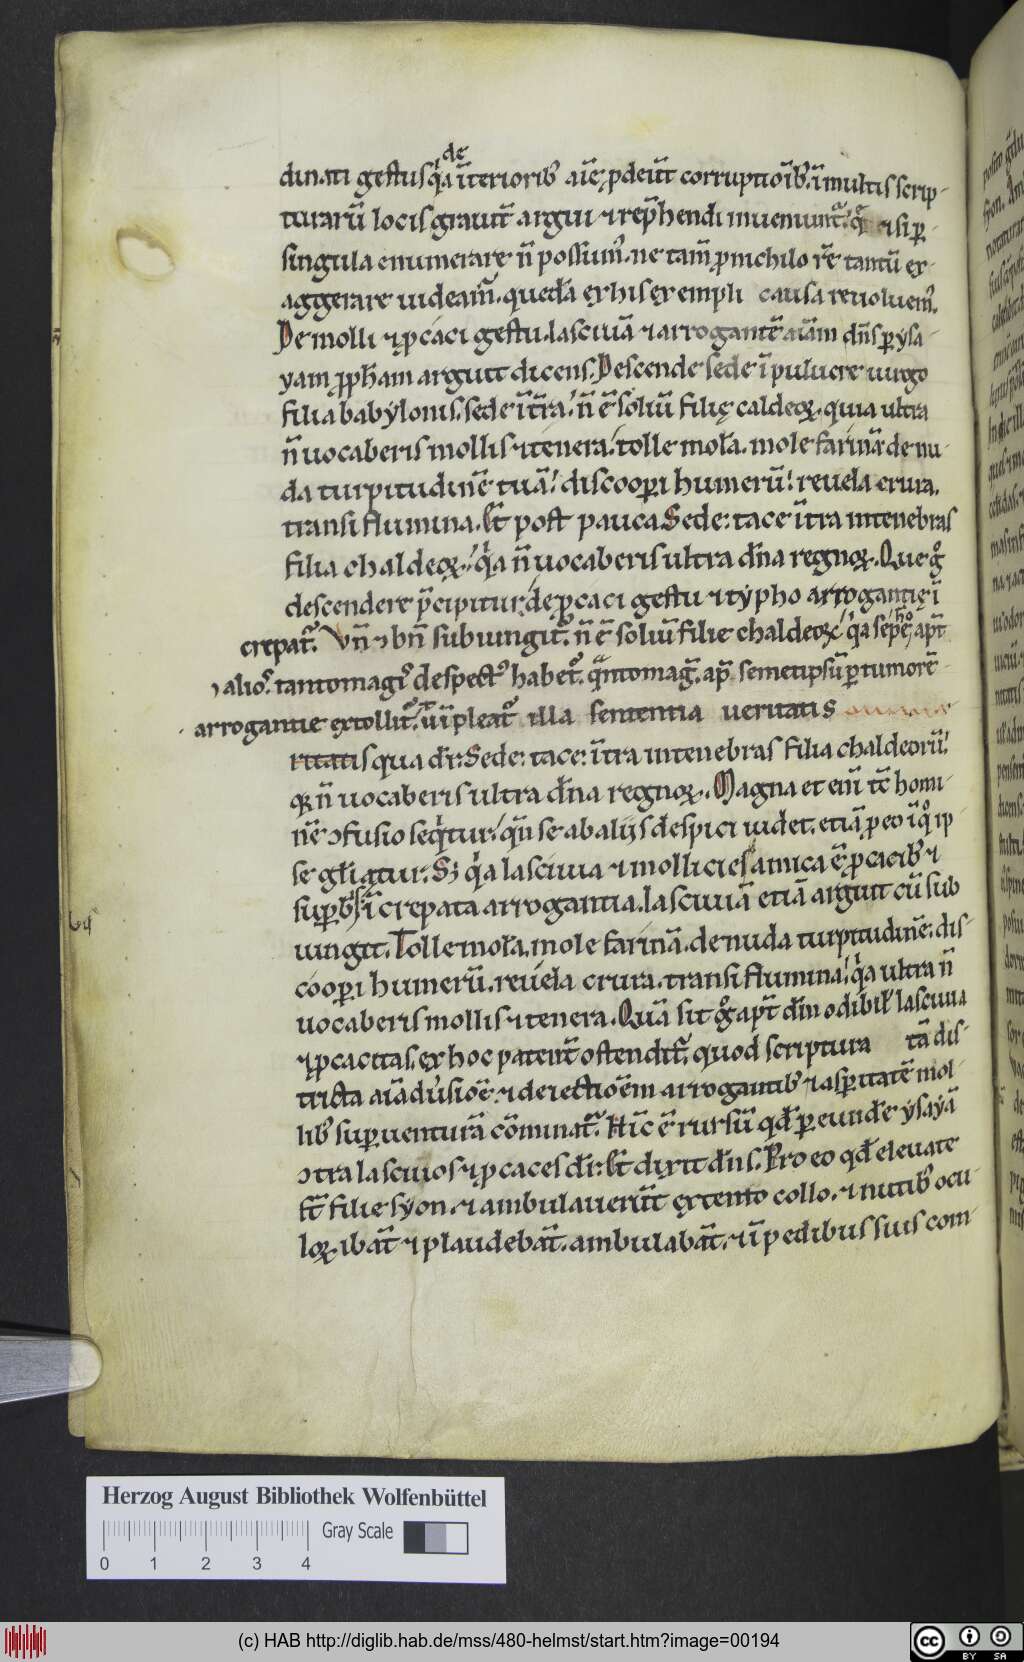 de
dinati gestus q̇a ĩteriorib' aĩe ꝓdeũt corruptiõib'. ĩ multis scrip-
turarũ locis grauit̃ argui ⁊ rep̃hendi inueniunt̃. q̃ si ꝑ
singula enumerare ñ possum'. ne tam̃ ꝓ nichilo rẽ tantũ ex-
aggerare uideam̃. quedã ex his exempli causa reuoluem'.
De molli ⁊ ꝓcaci gestu. lasciuiã ⁊ arrogantẽ aĩam dñs ꝑ ysa-
yam ꝓph̃am arguit dicens. Descende sede ĩ puluere uirgo
filia babylonis. sede ĩ t̃ra. ñ ẽ soliũ filię caldeoꝝ. quia ultra
ñ uocaberis mollis ⁊ tenera. tolle molã. mole farinã denu-
da turpitudinẽ tuã. discoopi humerũ. reuela crura.
transi flumina. Et post pauca. Sede: tace ĩtra in tenebras
filia chaldeoꝝ. q̇a ñ uocaberis ultra dña regnoꝝ. Que g̊
descendere p̃cipitur. de ꝓcaci gestu ⁊ typho arrogantię ĩ
crepat̃. Vñ ⁊ bñ subiungit̃. ñ ẽ soliũ filie chaldeoꝝ. q̇a apt̃
ↄ alio'. tanto magi' despect' habet̃. q̃nto mag̃. ap̃ semetipsũ ꝑ tumorẽ
arrogantie extollit̃. ũ ĩpleat̃ illa sententia ueritatis
ritatis qua dr̃: Sede: tace: ĩtra in tenebras filia chaldeorũ.
qꝛ ñ uocaberis ultra dña regnoꝝ. Magna et eni̅ tc̃ homi-
nẽ ↄfusio seq̇tur. q̃n se ab aliis despici uidet. etiã ꝓ eo ĩ q̊ ip-
se gl̃iatur. Sꝫ q̇a lasciuia ⁊ mollicies amica ẽ ꝓcacib' ⁊
supꝑb'. ĩcrepata arrogantia. lasciuiã etiã arguit cũ sub
iungit. Tolle molã. mole farinã. denuda turpitudinẽ. dis-
coopi humerũ. reuela crura. transi flumina. q̇a ultra ñ
uocaberis mollis ⁊ tenera. Quã sit g̊ apt̃ dm̃ odibil' lasciuia
⁊ ꝓcacitas. ex hoc patent̃ ostendit̃. quod scriptura tã dis-
tricta aĩaduˀsiõe. ⁊ deiectiõem arrogantib' ⁊ asperitatẽ mol-
lib' suꝑuenturã cõminat̃. Hĩc ẽ rursũ qd̃ ꝑ eundẽ ysayã
ↄtra lasciuos ⁊ ꝓcaces dr̃: Et dixit dñs. Pro eo qd̃ eleuate
st̃ filie syon. ⁊ ambulauerũt extento collo. ⁊ nutib' ocu-
loꝝ. ibãt ⁊ plaudebãt. ambulabãt. ⁊ ĩ pedibus suis com-
Herzog August Bibliothek Wolfenbüttel
Gray Scale
0 1 2 3 4
(c) HAB http://diglib.hab.de/mss/480-helmst/start.htm?image=00194
cc BY SA